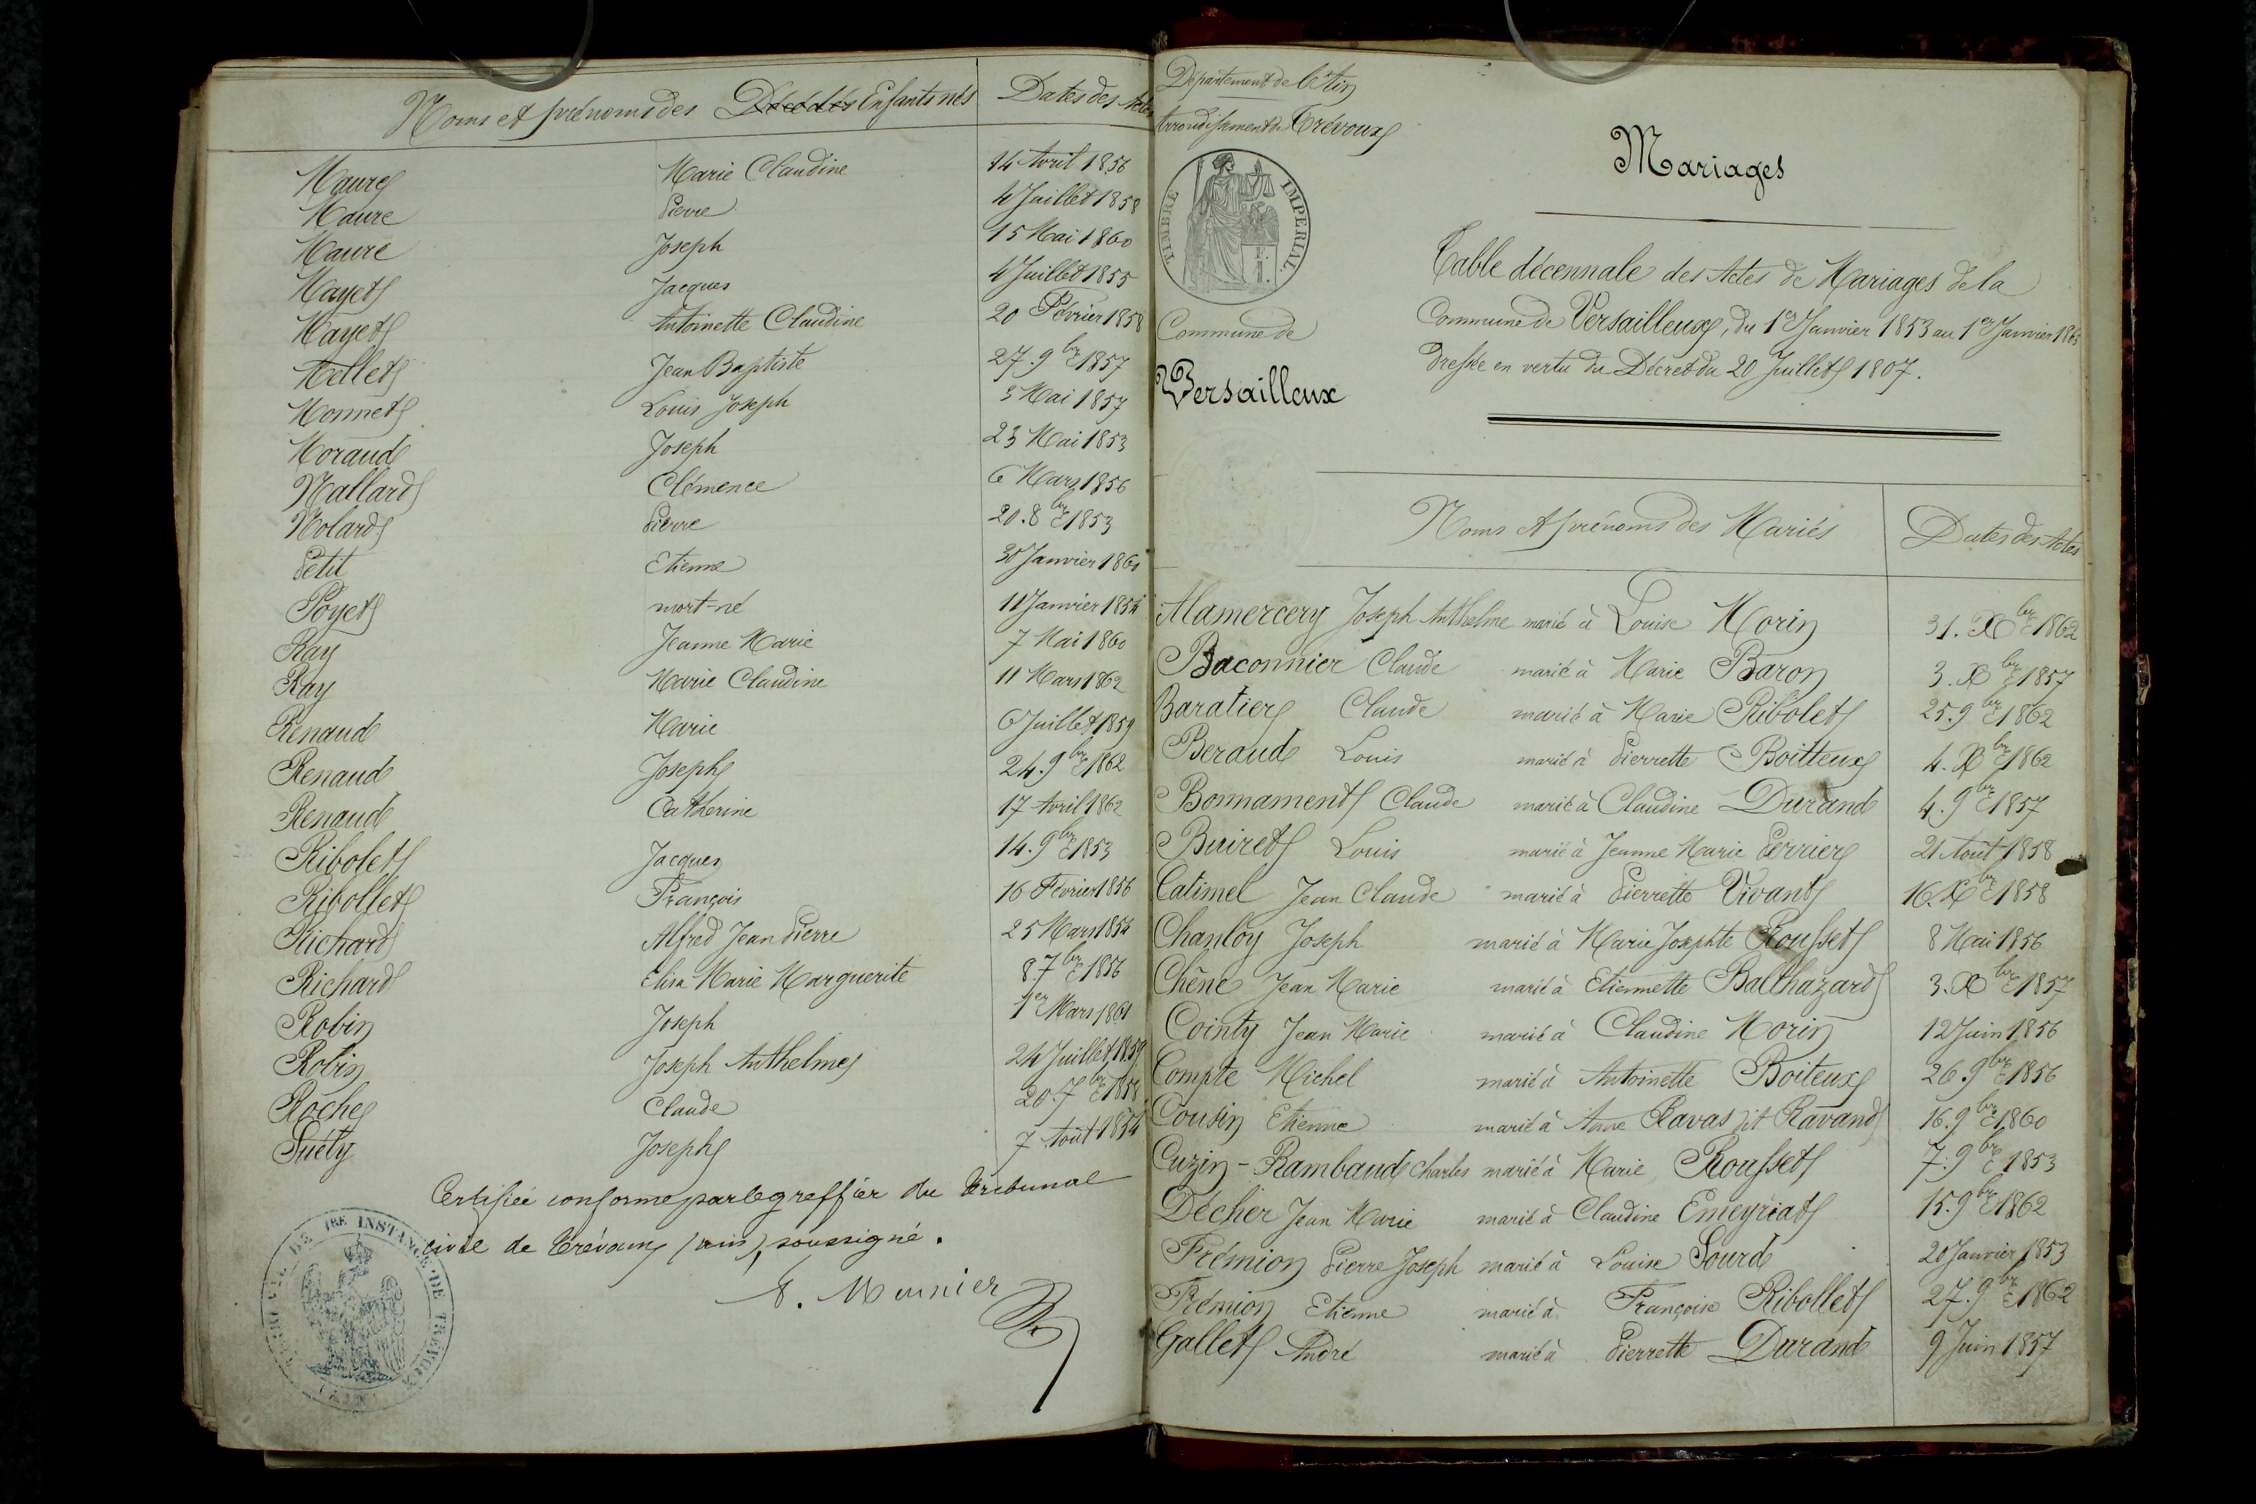 Noms et prénoms des Décédés Enfants nés Dates des Actes
Maure Marie Claudine 14 Avril 1856
Maure Pierre 4 Juillet 1858
Maure Joseph 15 Mai 1860
Mayet Jacques 4 Juillet 1855
Mayet Antoinette Claudine 20 Février 1858
Mellet Jean Baptiste 27. 9bre 1857
Monnet Louis Joseph 3 Mai 1857
Moraud Joseph 23 Mai 1853
Nallard Clémence 6 Mars 1856
Nolard Pierre 20. 8bre 1853
Petit Etienne 30 Janvier 1860
Poyet mort-né 11 Janvier 1854
Ray Jeanne Marie 7 Mai 1860
Ray Marie Claudine 11 Mars 1862
Renaud Marie 6 Juillet 1859
Renaud Joseph 24. 9bre 1862
Renaud Catherine 17 Avril 1862
Ribolet Jacques 14. 9bre 1853
Ribollet François 16 Février 1856
Richard Alfred Jean Pierre 25 Mars 1854
Richard Elisa Marie Marguerite 8 7bre 1856
Robin Joseph 1er Mars 1861
Robin Joseph Anthelme 24 Juillet 1859
Roche Claude 20. 7bre 1858
Suéty Joseph 7 Août 1854
Certifiée conforme par le greffier du tribunal
civil de Trévoux (ain), soussigné.
Meunier
TRIBUNAL DE 1RE INSTANCE DE TREVOUX
(AIN)
Département de l'Ain
Arrondissement de Trévoux
TIMBRE IMPERIAL.
Commune de
Versailleux
Mariages
Table décennale des Actes de Mariages de la
Commune de Versailleux, du 1er Janvier 1853 au 1er Janvier 1863
dressée en vertu du Décret du 20 Juillet 1807.
Noms et prénoms des Mariés Dates des Actes
Alamercery Joseph Anthelme marié à Louise Morin 31. Xbre 1862
Baconnier Claude marié à Marie Baron 3. Xbre 1857
Baratier Claude marié à Marie Ribolet 25. 9bre 1862
Beraud Louis marié à Pierrette Boitteux 4. Xbre 1862
Bonnament Claude marié à Claudine Durand 4. 9bre 1857
Buiret Louis marié à Jeanne Marie Perrier 21 Août 1858
Catimel Jean Claude marié à Pierrette Vivant 16. Xbre 1858
Chanloy Joseph marié à Marie Josephte Rousset 8 Mai 1856
Chêne Jean Marie marié à Etiennette Balthazard 3. Xbre 1857
Cointy Jean Marie marié à Claudine Morin 12 Juin 1856
Compte Michel marié à Antoinette Boiteux 26. 9bre 1856
Cousin Etienne marié à Anne Ravas dit Ravand 16. 9bre 1860
Cuzin-Rambaud Charles marié à Marie Rousset 7. 9bre 1853
Décher Jean Marie marié à Claudine Emeyriat 15. 9bre 1862
Frémion Pierre Joseph marié à Louise Sourd 20 Janvier 1853
Frémion Etienne marié à Françoise Ribollet 27. 9bre 1862
Gallet André marié à Pierrette Durand 9 Juin 1857